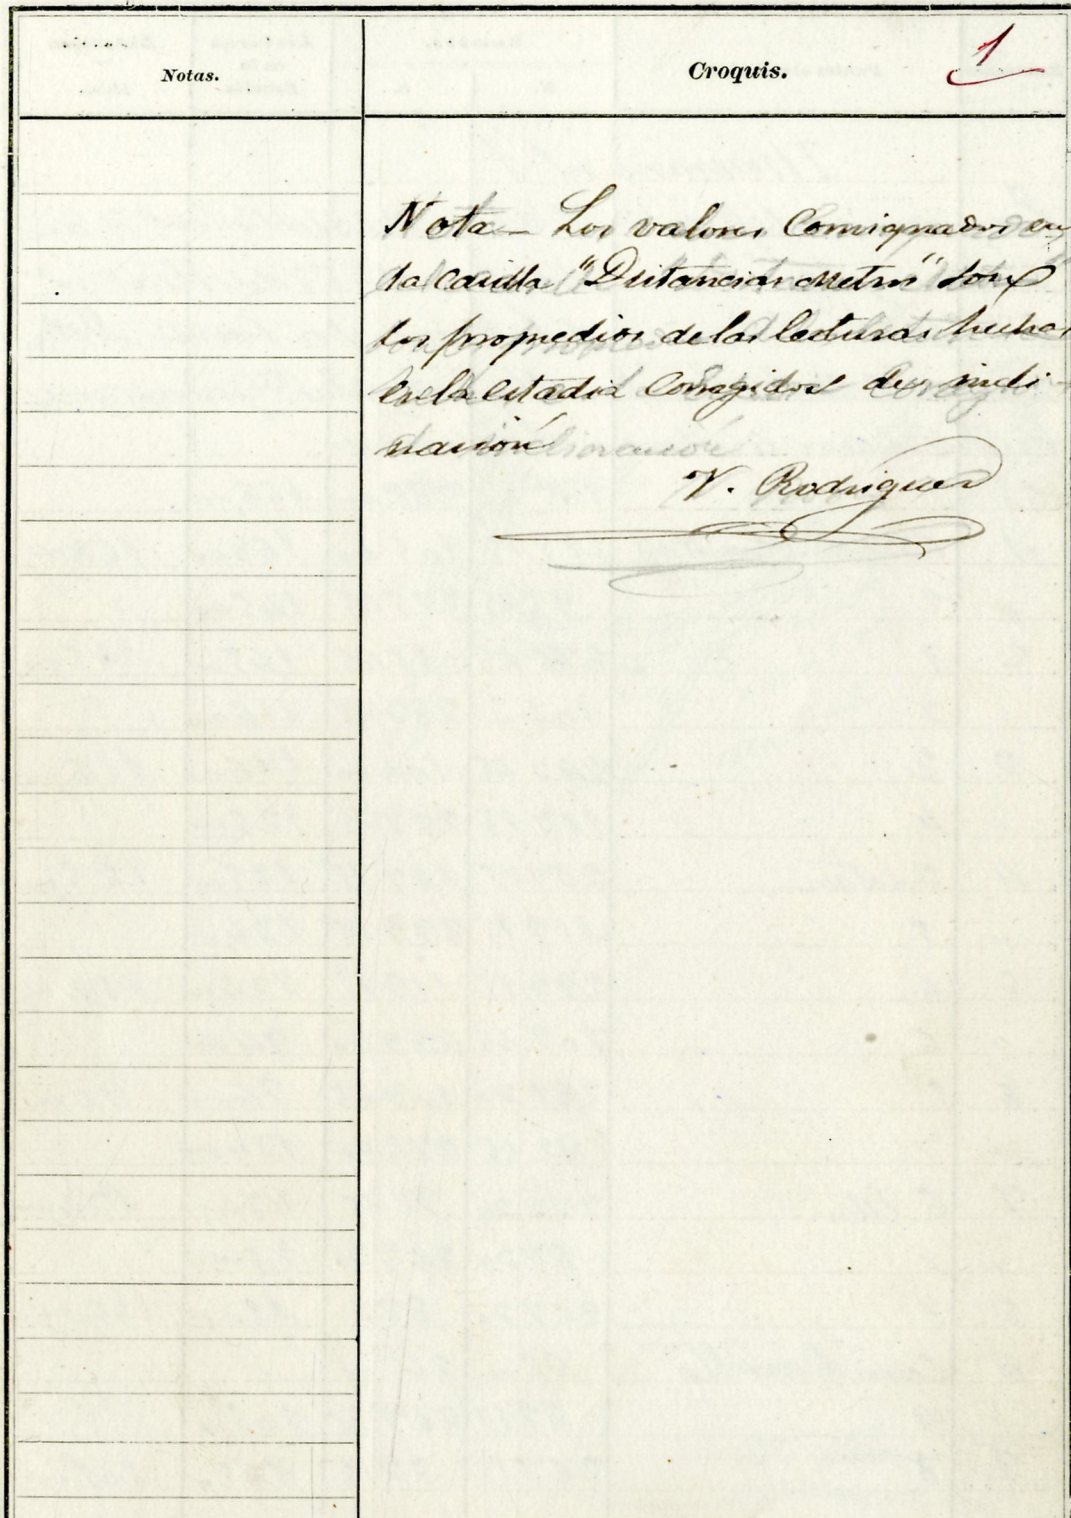 Notas.
Croquis.
1
Nota — Los valores Consignados en
la casilla "Distancias Metros" son
los promedios de las lecturas hechas
en la estadia corregidos de incli-
nación
V. Rodriguez